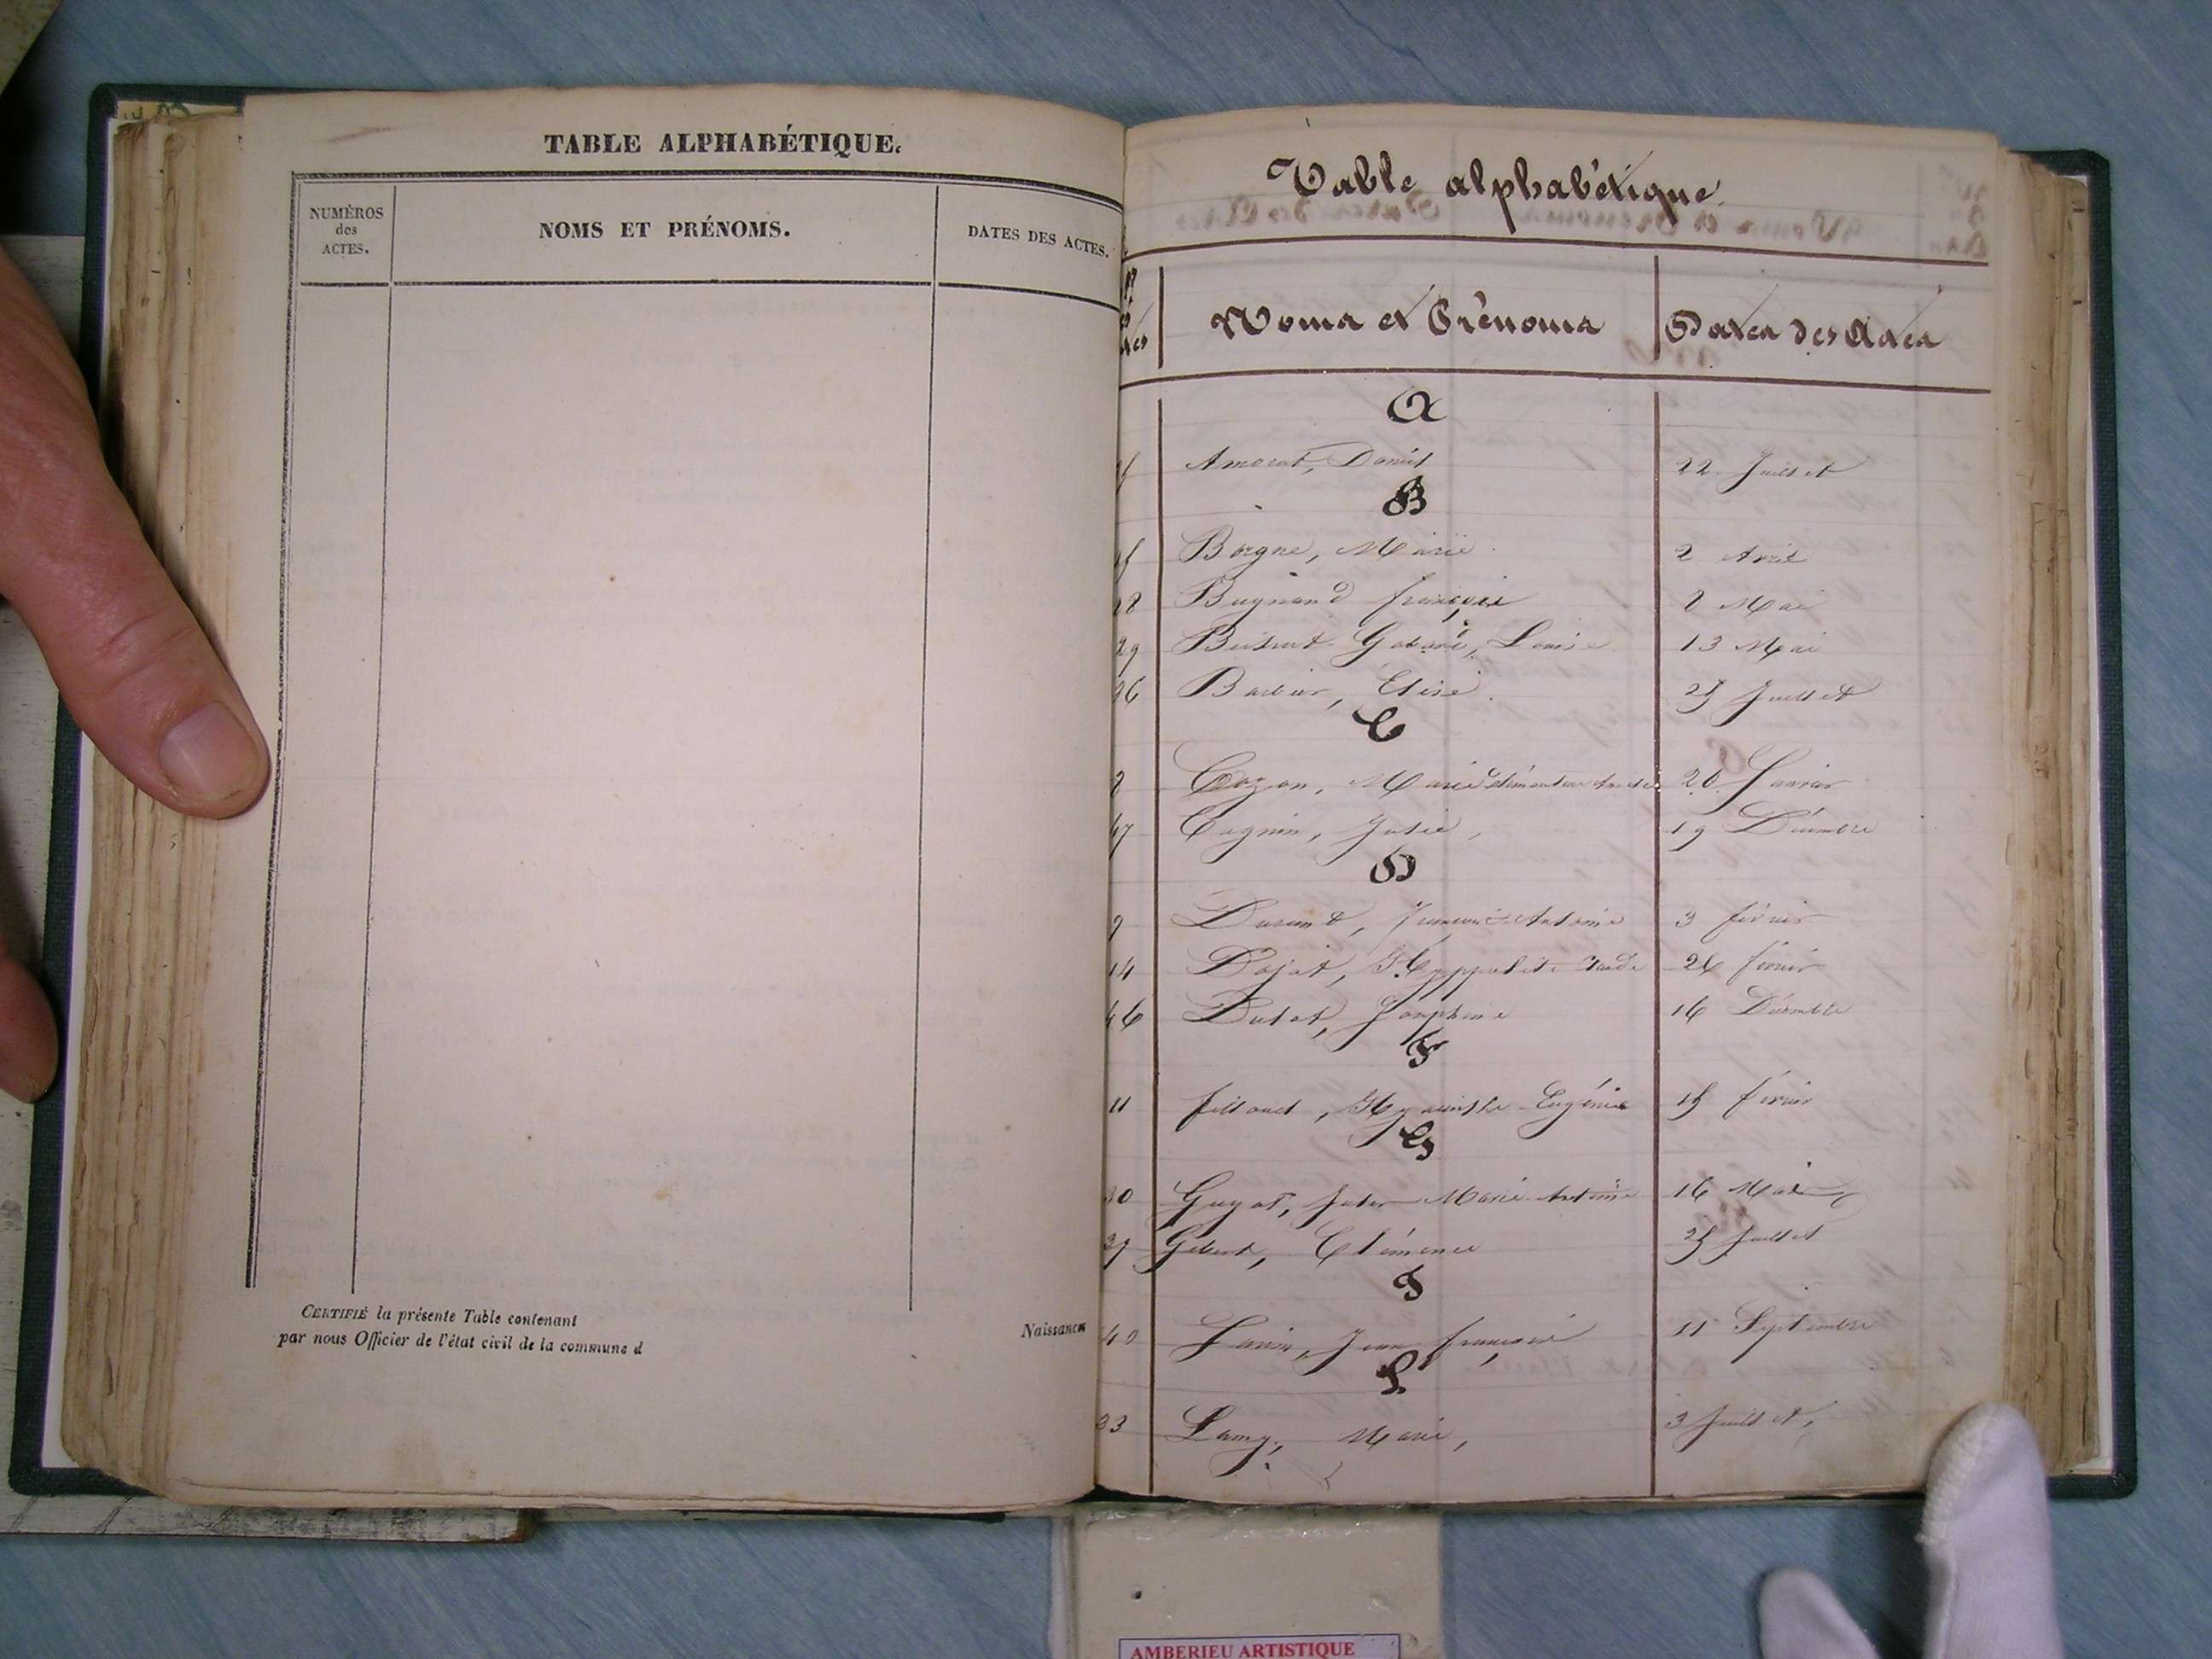 TABLE ALPHABÉTIQUE.
NUMÉROS
des
ACTES.
NOMS ET PRÉNOMS.
DATES DES ACTES.
CERTIFIÉ la présente Table contenant Naissances
par nous Officier de l'état civil de la commune d
Table alphabétique.
Noms et Prénoms Dates des Actes
A
22 Juillet
B
Borgne, Marie 2 Avril
Bugnand François 8 Mai
29 Louise 13 Mai
Barbier, Elise 25 Juillet
C
8 Cozon, Marie 26 Janvier
47 Cagnin, Josie, 19 Décembre
D
9 Durand, François Antoine 3 février
14 Dojat, Hyppolite Claude 26 février
46 Dutot, Josephine 16 Décembre
F
11 Hyacinthe Eugénie 15 février
G
30 Guyot, Marie Antoine 16 Mai
Clémence 25 Juillet
J
40 Janin, Jean François 11 Septembre
L
33 Lamy, Marie, 3 Juillet,
AMBERIEU ARTISTIQUE